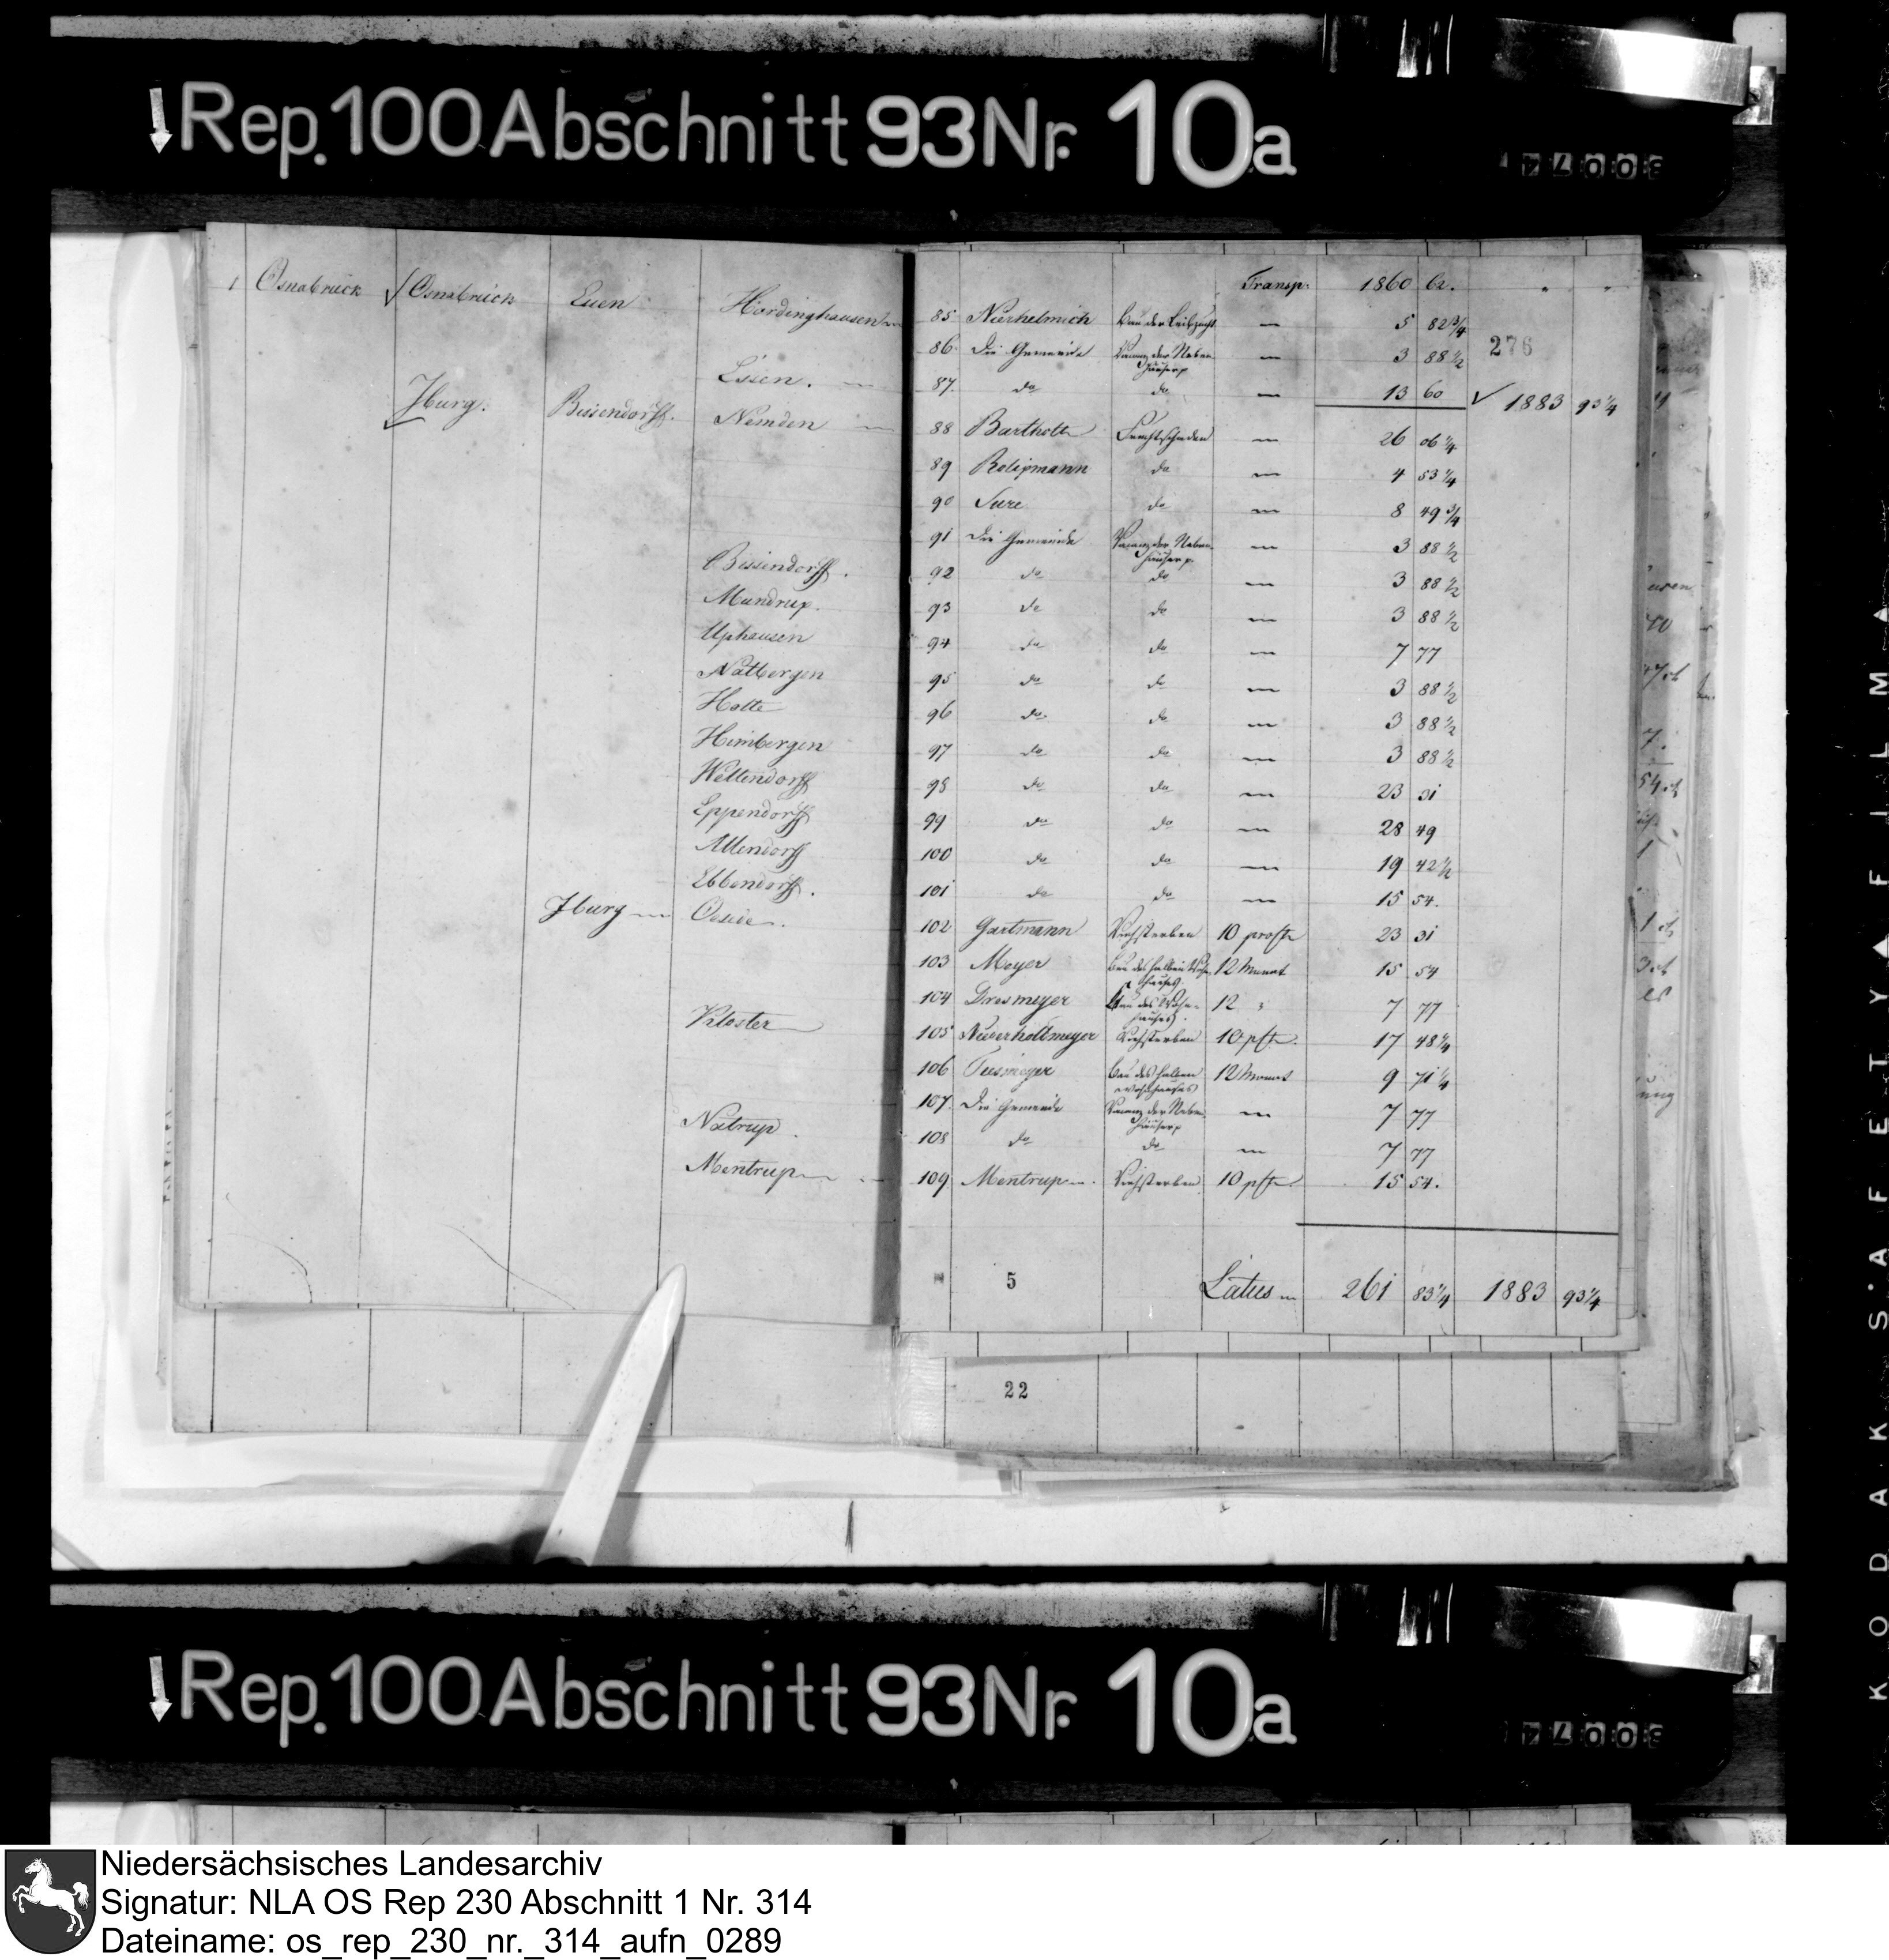 Rep. 100 Abschnitt 93 Nr. 10a
1 Osnabrück Osnabrück Euen Hördinghausen
Transp. 1860 62.
85 Nierhelmich Bau der Leibzucht 5 82 3/4
276
86 Die Gemeinde der Neben häuser p 3 88 1/2
Essen. 87. do do 13 60 1883 93 1/4
Iburg. Bissendorff. Nemden 88 Barthold 26 06 1/4
89 do 4 53 1/4
90 Sure do 8 49 3/4
91 Die Gemeinde der Neben häuser p. 3 88 1/2
Bissendorff. 92 do do 3 88 1/2
Mundrup. 93 do do 3 88 1/2
Uphausen 94 do do 7 77
Natbergen 95 do do 3 88 1/2
Holte 96 do do 3 88 1/2
Himbergen 97 do do 3 88 1/2
Wettendorff 98 do do 23 31
Eppendorff 99 do do 28 49
Allendorff 100 do do 19 42 1/2
Ebbendorff. 101 do do 15 54.
Iburg Oesede. 102 Gartmann Viehsterben 10 23 31
103 Meyer Bau des halben 12 Monat 15 54
104 Dresmeyer Bau des Wohn hauses 12 7 77
Kloster 105 Niederholtmeyer Viehsterben 10 17 48 1/4
106 Tiesmeyer Bau des halben Wohnhauses 12 Monat 9 71 1/4
107. Die Gemeinde der Neben häuser p 7 77
Natrup. 108 do do 7 77
Mentrup 109 Mentrup Viehsterben 10 15 54.
5 Latus 261 83 1/4 1883 93 1/4
22
KODAK SAFETY FILM
Rep. 100 Abschnitt 93 Nr. 10a
Niedersächsisches Landesarchiv
Signatur: NLA OS Rep 230 Abschnitt 1 Nr. 314
Dateiname: os_rep_230_nr._314_aufn_0289